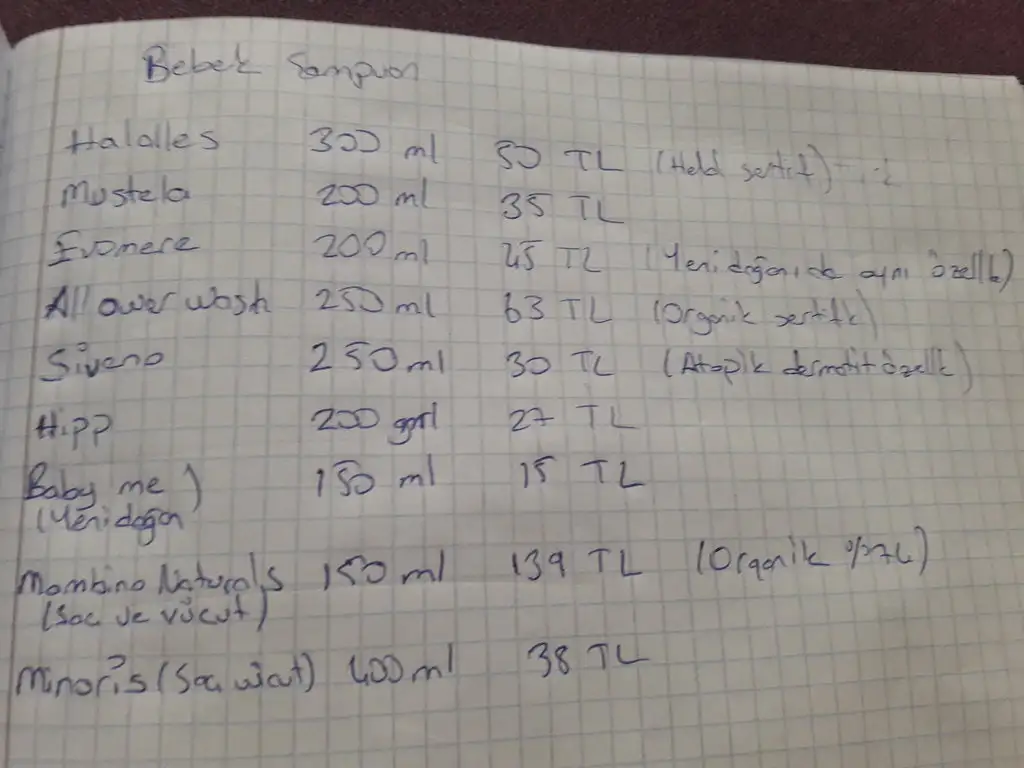 Bebek Şampuan
Halalles 300 ml 50 TL (Helal sertif)
Mustela 200 ml 35 TL
Evomere 200 ml 45 TL (Yenidoğan, de aynı özellik)
All over wash 250 ml 63 TL (Organik sertifk)
Siveno 250 ml 30 TL (Atopik dermatit özellk)
Hipp 200 ml 27 TL
Baby me 150 ml 15 TL
(Yenidoğan)
Mambino Naturals 150 ml 139 TL (Organik
(Saç ve vücut)
Minoris (Saç vücut) 400 ml 38 TL